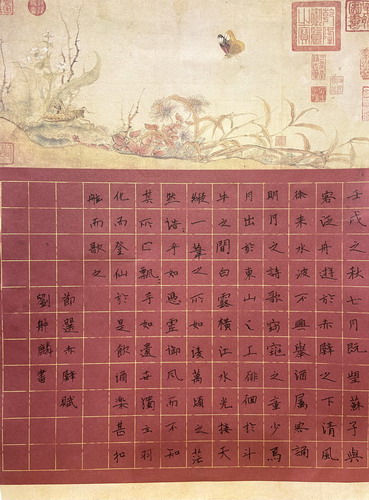 壬戌之秋七月既望蘇子與
客泛舟遊於赤壁之下清風
徐來水波不興舉酒属客誦
明月之詩歌窈窕之章少焉
月出於東山之上徘徊於斗
牛之間白露橫江水光接天
縱一葦之所如凌萬頃之茫
然浩乎如憑虛御風而不知
其所止飄乎如遺世獨立羽
化而登仙於是飲酒樂甚扣
舷而歌之
節選赤壁賦
劉麟書